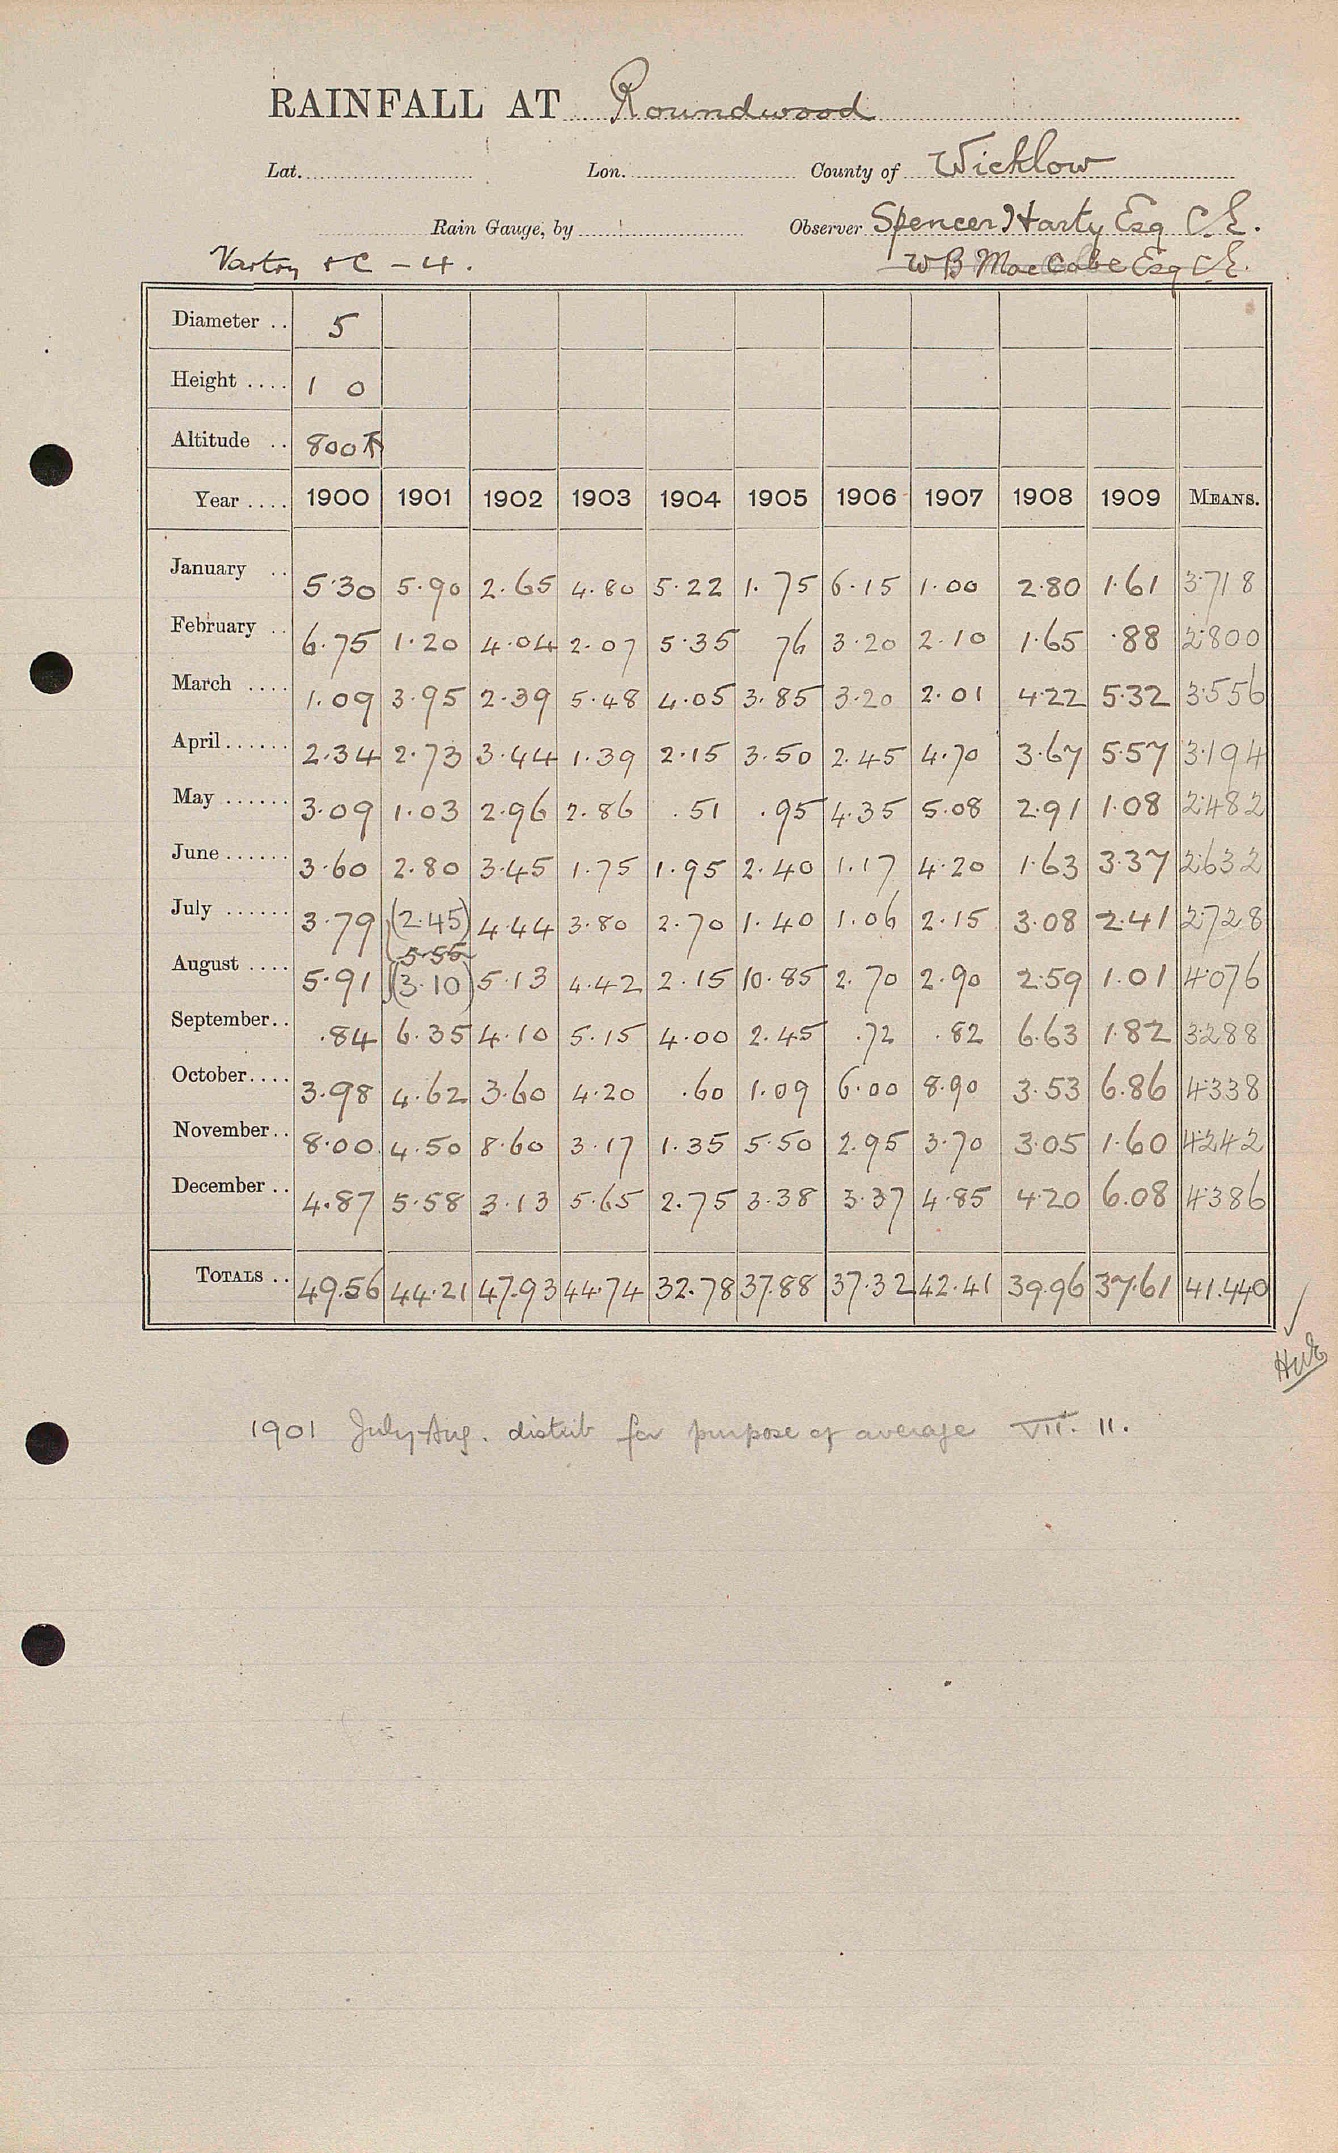 RAINFALL AT Roundwood
Lat. Lon. County of Wicklow
Rain Gauge, by Observer Spencer Harty Esq C.E.
Vartry &C - 4. W B MacCabe Esq C.E.
Diameter .. 5
Height .... 1 0
Altitude .. 800 ft
Year .... 1900 1901 1902 1903 1904 1905 1906 1907 1908 1909 MEANS.
January .. 5.30 5.90 2.65 4.80 5.22 1.75 6.15 1.00 2.80 1.61 3.718
February .. 6.75 1.20 4.04 2.07 5.35 76 3.20 2.10 1.65 .88 2.800
March .... 1.09 3.95 2.39 5.48 4.05 3.85 3.20 2.01 4.22 5.32 3.556
April ...... 2.34 2.73 3.44 1.39 2.15 3.50 2.45 4.70 3.67 5.57 3.194
May ...... 3.09 1.03 2.96 2.86 .51 .95 4.35 5.08 2.91 1.08 2.482
June ...... 3.60 2.80 3.45 1.75 1.95 2.40 1.17 4.20 1.63 3.37 2.632
July ...... 3.79 (2.45) 4.44 3.80 2.70 1.40 1.06 2.15 3.08 2.41 2.728
5.55
August .... 5.91 (3.10) 5.13 4.42 2.15 10.85 2.70 2.90 2.59 1.01 4.076
September.. .84 6.35 4.10 5.15 4.00 2.45 .72 .82 6.63 1.82 3.288
October.... 3.98 4.62 3.60 4.20 .60 1.09 6.00 8.90 3.53 6.86 4.338
November.. 8.00 4.50 8.60 3.17 1.35 5.50 2.95 3.70 3.05 1.60 4.242
December .. 4.87 5.58 3.13 5.65 2.75 3.38 3.37 4.85 4.20 6.08 4.386
TOTALS .. 49.56 44.21 47.93 44.74 32.78 37.88 37.32 42.41 39.96 37.61 41.440
1901 July-Aug. distrib for purpose of average VII. 11.